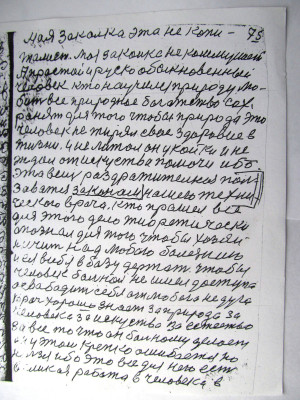 75
Мая Закалка эта не Капи-
талист. Моя закалка не комунист
А простой и руско обыкновенный
человек кто научил природу лю-
бит все природное богатство сох
ранят для того чтобы природа это
человек не тирял свое здоровие в
жизни. и не лажал он у койки и не
ждал от искуства помочи ибо
это веих раздражителноя полз
завался законам нашего техни
ческого врача. кто прашел все
для этого дело тиоретически
опознал для того чтобы хозяй-
ничит над любою болезнию
и сел в себя в базу держат. чтобы
человек болной не имел доступа
освабодит себя от любога недуга
врач хорошо знает за природа за
человека за искуство за естество
за все то что он болному делает
и у этом крепко ошибается но
нелзя ибо это все для него ест
великая работа в человека в